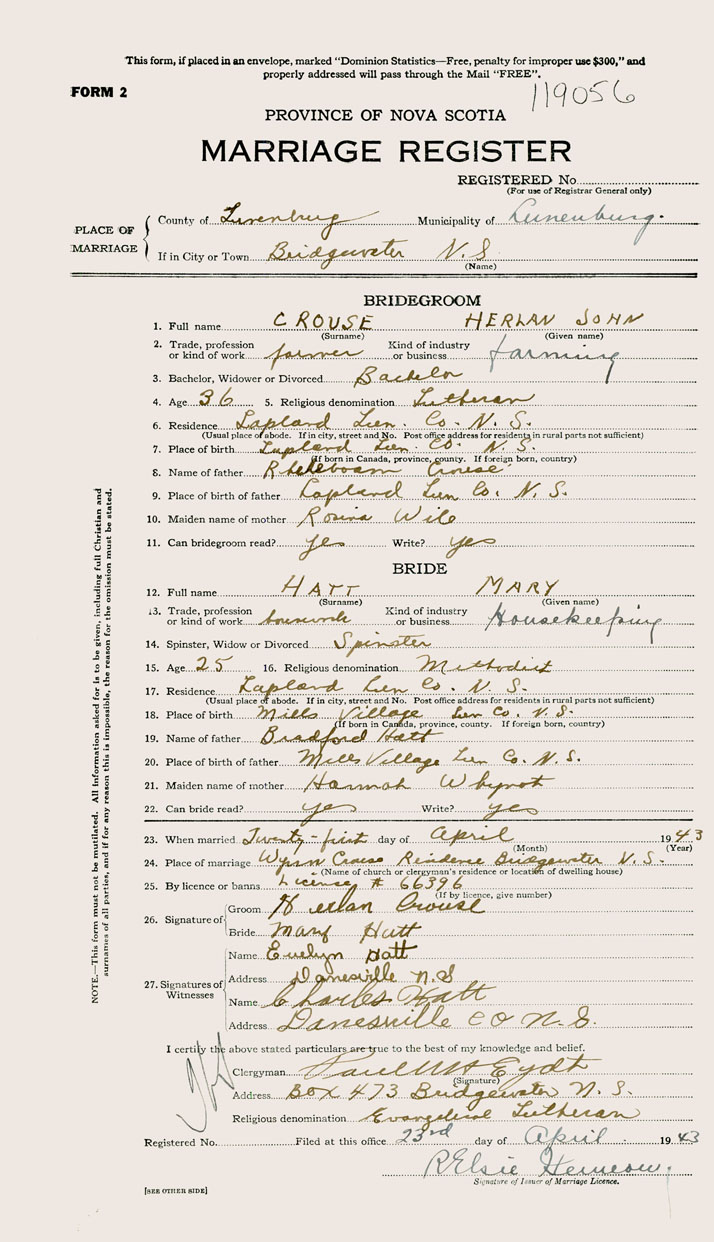 This form, if placed in an envelope, marked "Dominion Statistics—Free, penalty for improper use $300," and
properly addressed will pass through the Mail "FREE".
FORM 2
119056
PROVINCE OF NOVA SCOTIA
MARRIAGE REGISTER
REGISTERED No.
(For use of Registrar General only)
PLACE OF MARRIAGE
County of Lunenburg Municipality of Lunenburg.
If in City or Town Bridgewater N.S
(Name)
BRIDEGROOM
1. Full name CROUSE HERLAN JOHN
(Surname) (Given name)
2. Trade, profession or kind of work farmer Kind of industry or business farming
3. Bachelor, Widower or Divorced Bachelor
4. Age 36 5. Religious denomination Lutheran
6. Residence Lapland Lun. Co. N. S.
(Usual place of abode. If in city, street and No. Post office address for residents in rural parts not sufficient)
7. Place of birth Lapland Lun Co. N. S.
(If born in Canada, province, county. If foreign born, country)
8. Name of father Crouse
9. Place of birth of father Lapland Lun Co. N. S.
10. Maiden name of mother Rosina Wile
11. Can bridegroom read? yes Write? yes
BRIDE
12. Full name HATT MARY
(Surname) (Given name)
13. Trade, profession or kind of work housework Kind of industry or business Housekeeping
14. Spinster, Widow or Divorced Spinster
15. Age 25 16. Religious denomination Methodist
17. Residence Lapland Lun Co. N. S.
(Usual place of abode. If in city, street and No. Post office address for residents in rural parts not sufficient)
18. Place of birth Mills Village Lun Co. N. S.
(If born in Canada, province, county. If foreign born, country)
19. Name of father Bradford Hatt
20. Place of birth of father Mills Village Lun Co. N. S.
21. Maiden name of mother Hannah Whynot
22. Can bride read? yes Write? yes
23. When married Twenty-first day of April 1943
(Month) (Year)
24. Place of marriage Wynn Crouse Residence Bridgewater N. S.
(Name of church or clergyman's residence or location of dwelling house)
25. By licence or banns License # 66396
(If by licence, give number)
26. Signature of
Groom Herlan Crouse
Bride Mary Hatt
27. Signatures of Witnesses
Name Evelyn Hatt
Address Danesville N.S
Name Charles Hatt
Address Danesville CO N.S.
I certify the above stated particulars are true to the best of my knowledge and belief.
Clergyman Paul Eydt
(Signature)
Address Box 473 Bridgewater N. S.
Religious denomination Evangelical Lutheran
Registered No. Filed at this office 23rd day of April 1943
R Elsie
Signature of Issuer of Marriage Licence.
[SEE OTHER SIDE]
NOTE.—This form must not be mutilated. All information asked for is to be given, including full Christian and
surnames of all parties, and if for any reason this is impossible, the reason for the omission must be stated.